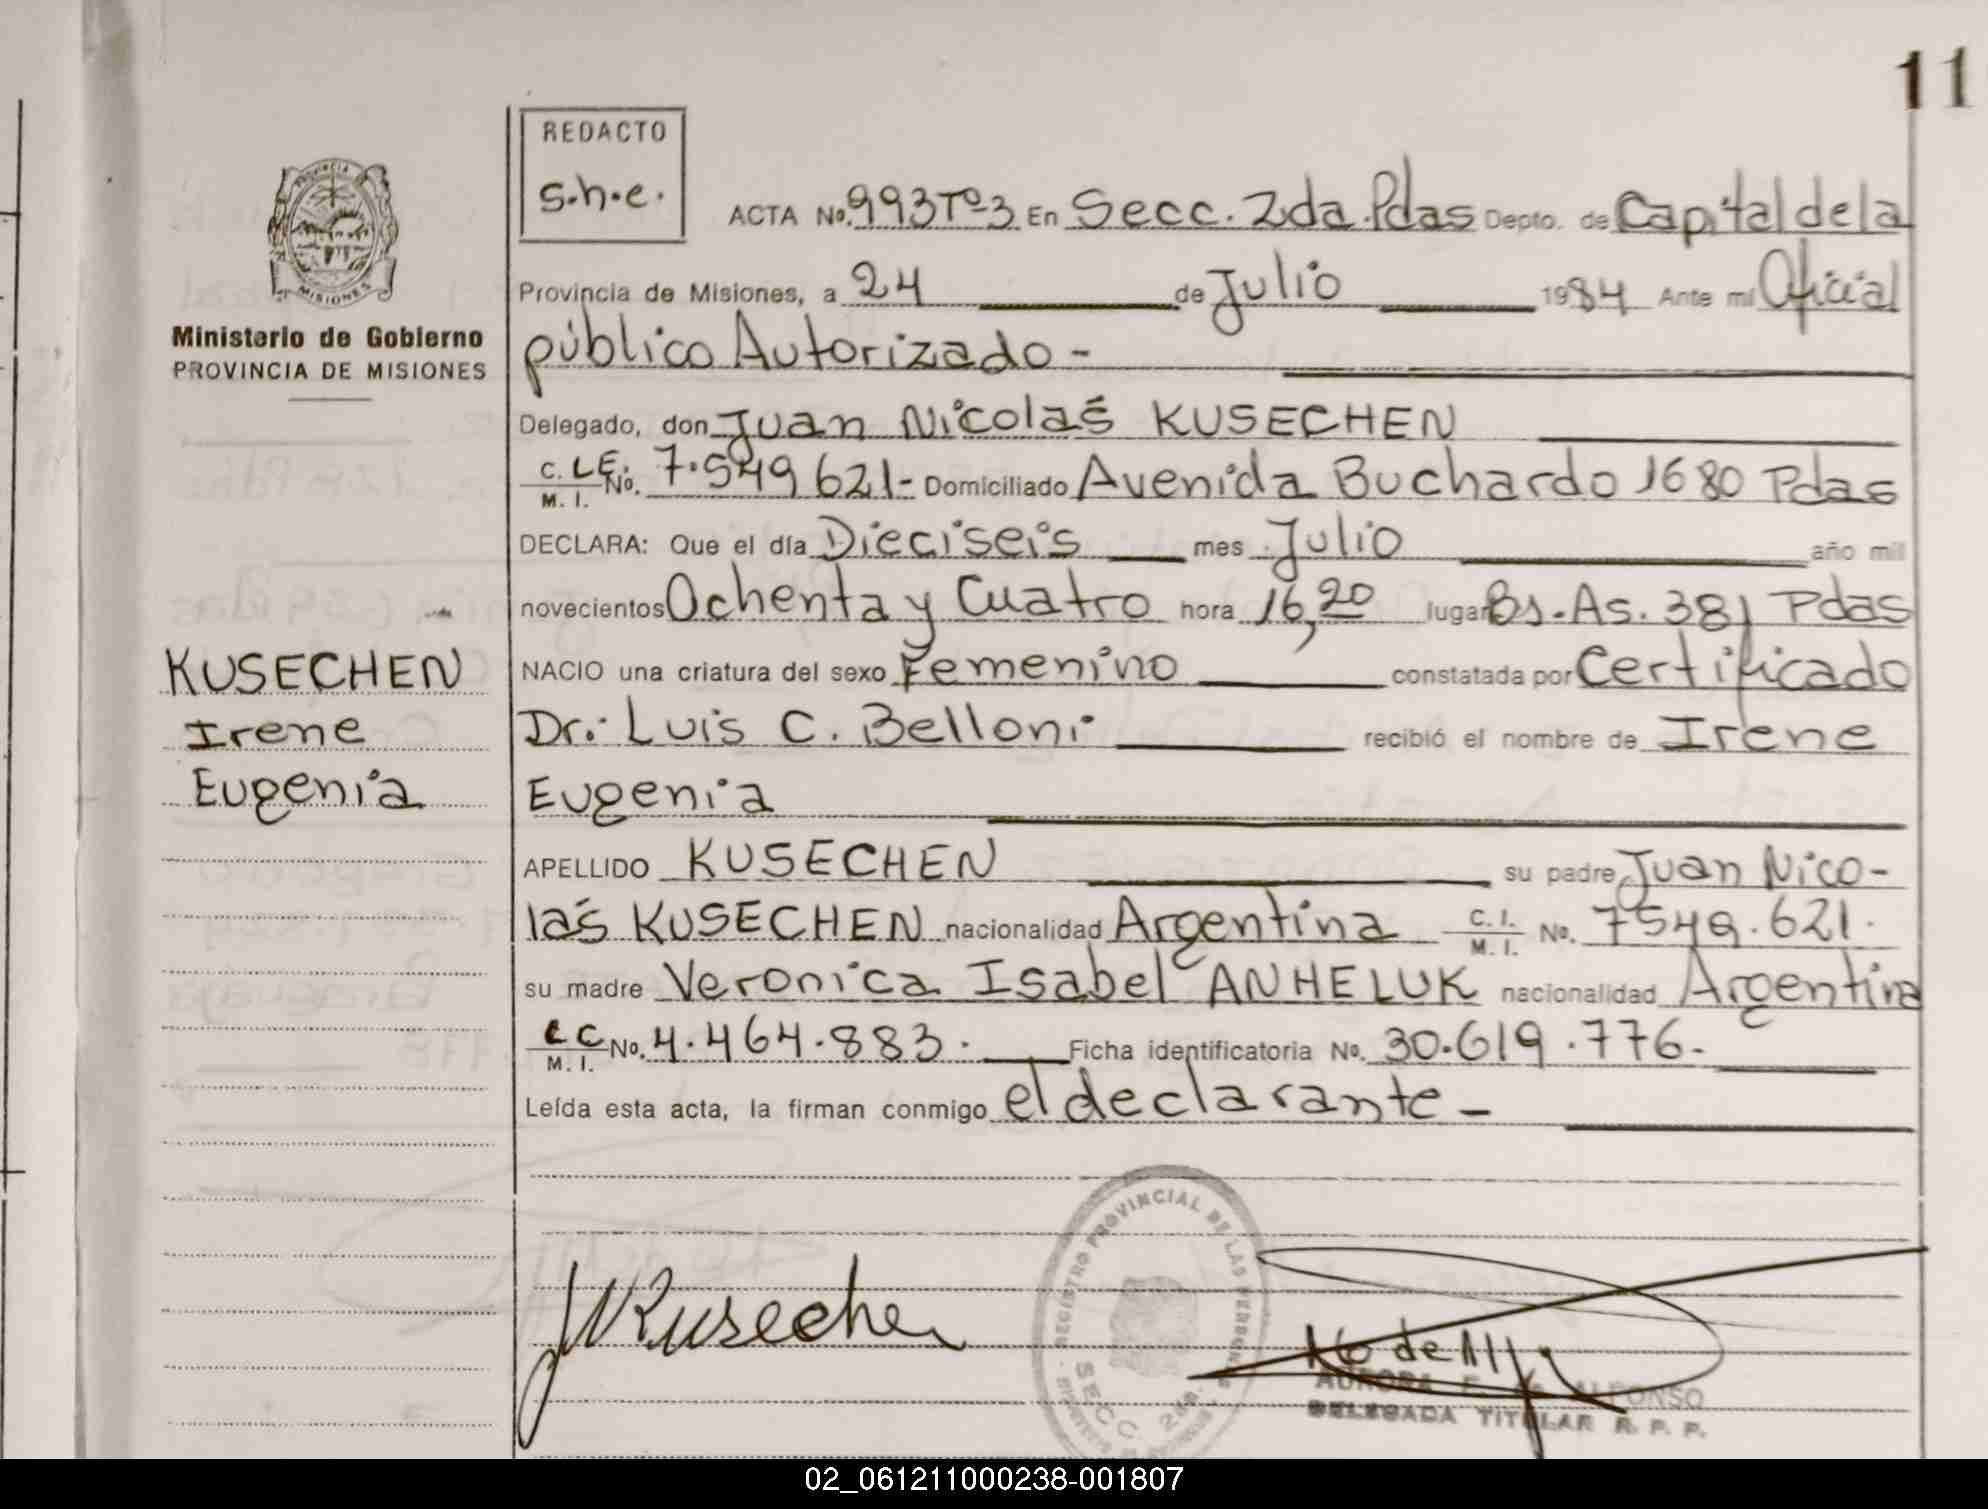 11
REDACTO
s.h.e.
PROVINCIA
MISIONES
Ministerio de Gobierno
PROVINCIA DE MISIONES
ACTA No. 993 Tº 3 En Secc. 2da. Pdas Depto. de Capital de la
Provincia de Misiones, a 24 de Julio 1984 Ante mí Oficial
público Autorizado -
Delegado, don Juan Nicolás KUSECHEN
C. L.E. No. 7.549 621- Domiciliado Avenida Buchardo 1680 Pdas
M. I.
DECLARA: Que el día Dieciseis mes Julio año mil
novecientos Ochenta y Cuatro hora 16,20 lugar Bs.As. 381 Pdas
KUSECHEN
Irene
Eugenia
NACIO una criatura del sexo Femenino constatada por Certificado
Dr.: Luis C. Belloni recibió el nombre de Irene
Eugenia
APELLIDO KUSECHEN su padre Juan Nico-
lás KUSECHEN nacionalidad Argentina C. I. No. 7549.621.
M. I.
su madre Veronica Isabel ANHELUK nacionalidad Argentina
LC No. 4.464.883. Ficha identificatoria No. 30.619.776.-
M. I.
Leída esta acta, la firman conmigo el declarante -
REGISTRO PROVINCIAL DE LAS PERSONAS
SECC 2da.
JNKusechen
AURORA ALFONSO
DELEGADA TITULAR R. P. P.
02_061211000238-001807